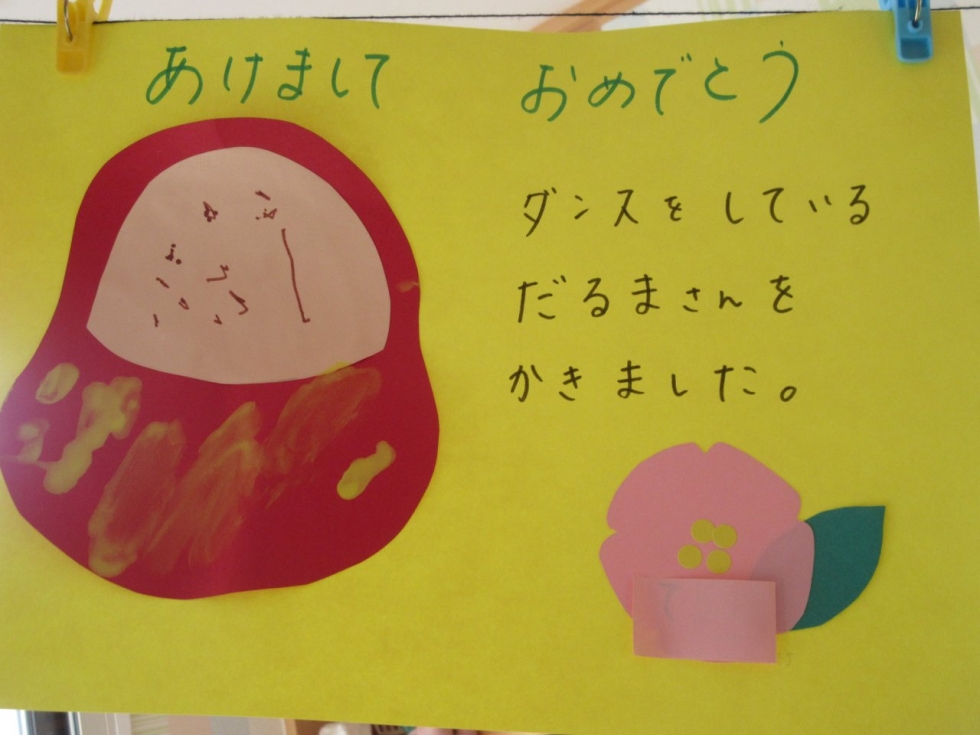 あけまして おめでとう
ダンスを している
だるまさんを
かきました。